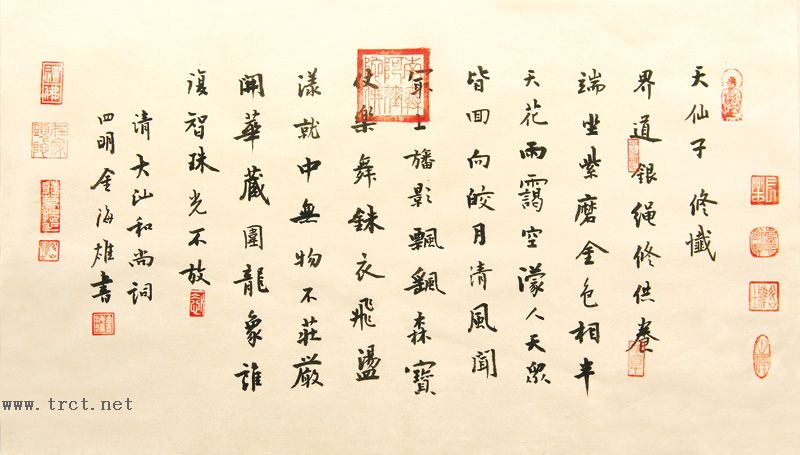 天仙子 修懺
界道銀繩修供養
端坐紫磨金色相半
天花雨靄空濛人天眾
皆回向皎月清風聞
士旛影飄飄森寶
仗樂舞銖衣飛盪
漾就中無物不莊嚴
開華藏圍龍象誰
復智珠光不放
清大汕和尚詞
四明金海雄書
www.trct.net